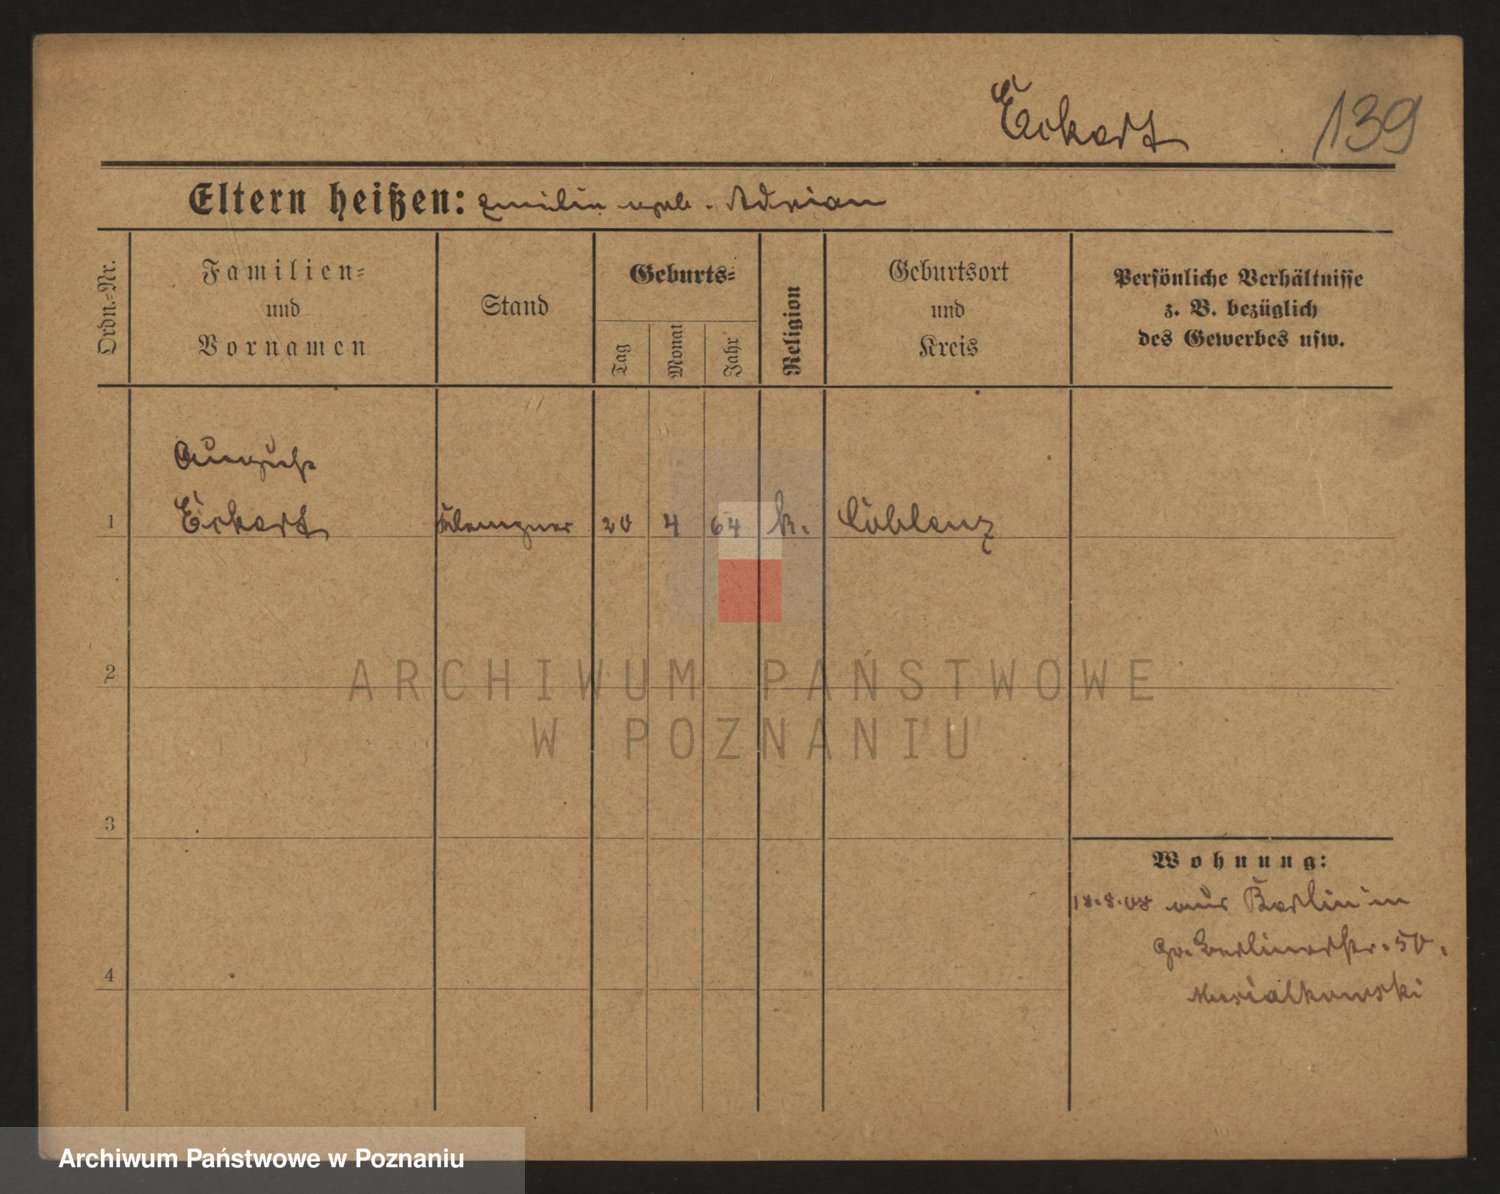 Eckart 139
Eltern heißen: Emilie geb. Adrian
Ordn.-Nr.
Familien-
und
Vornamen
Stand
Geburts-
Tag
Monat
Jahr
Religion
Geburtsort
und
Kreis
Persönliche Verhältnisse
z. B. bezüglich
des Gewerbes usw.
August
1 Eckart Klempner 20 4 64 k. Coblenz
2
3
4
Wohnung:
18.8.08 aus Berlin in
Gr. Berlinerstr. 50.
ARCHIWUM PAŃSTWOWE
W POZNANIU
Archiwum Państwowe w Poznaniu